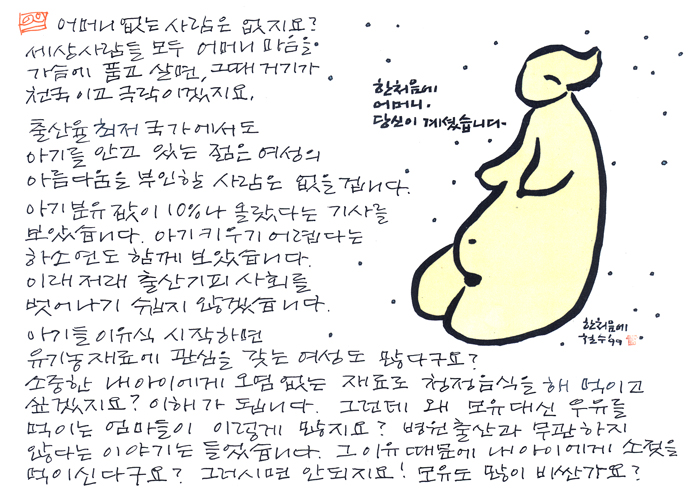 어머니 없는 사람은 없지요?
세상사람들 모두 어머니 마음을
가슴에 품고 살면, 그때 거기가
천국이고 극락이겠지요.
한처음에
어머니.
당신이 계셨습니다.
출산율 최저 국가에서도
아기를 안고 있는 젊은 여성의
아름다움을 부인할 사람은 없을겁니다.
아기분유값이 10%나 올랐다는 기사를
보았습니다. 아기키우기 어렵다는
하소연도 함께 보았습니다.
이래저래 출산기피 사회를
벗어나기 쉽지 않겠습니다.
한처음에
아기들 이유식 시작하면
유기농재료에 관심을 갖는 여성도 많다구요?
소중한 내아이에게 오염없는 재료로 청정음식을 해 먹이고
싶겠지요? 이해가 됩니다. 그런데 왜 모유대신 우유를
먹이는 엄마들이 이렇게 많지요? 병원출산과 무관하지
않다는 이야기는 들었습니다. 그 이유 때문에 내아이에게 소젖을
먹이신다구요? 그러시면 안되지요! 모유도 많이 비싼가요?